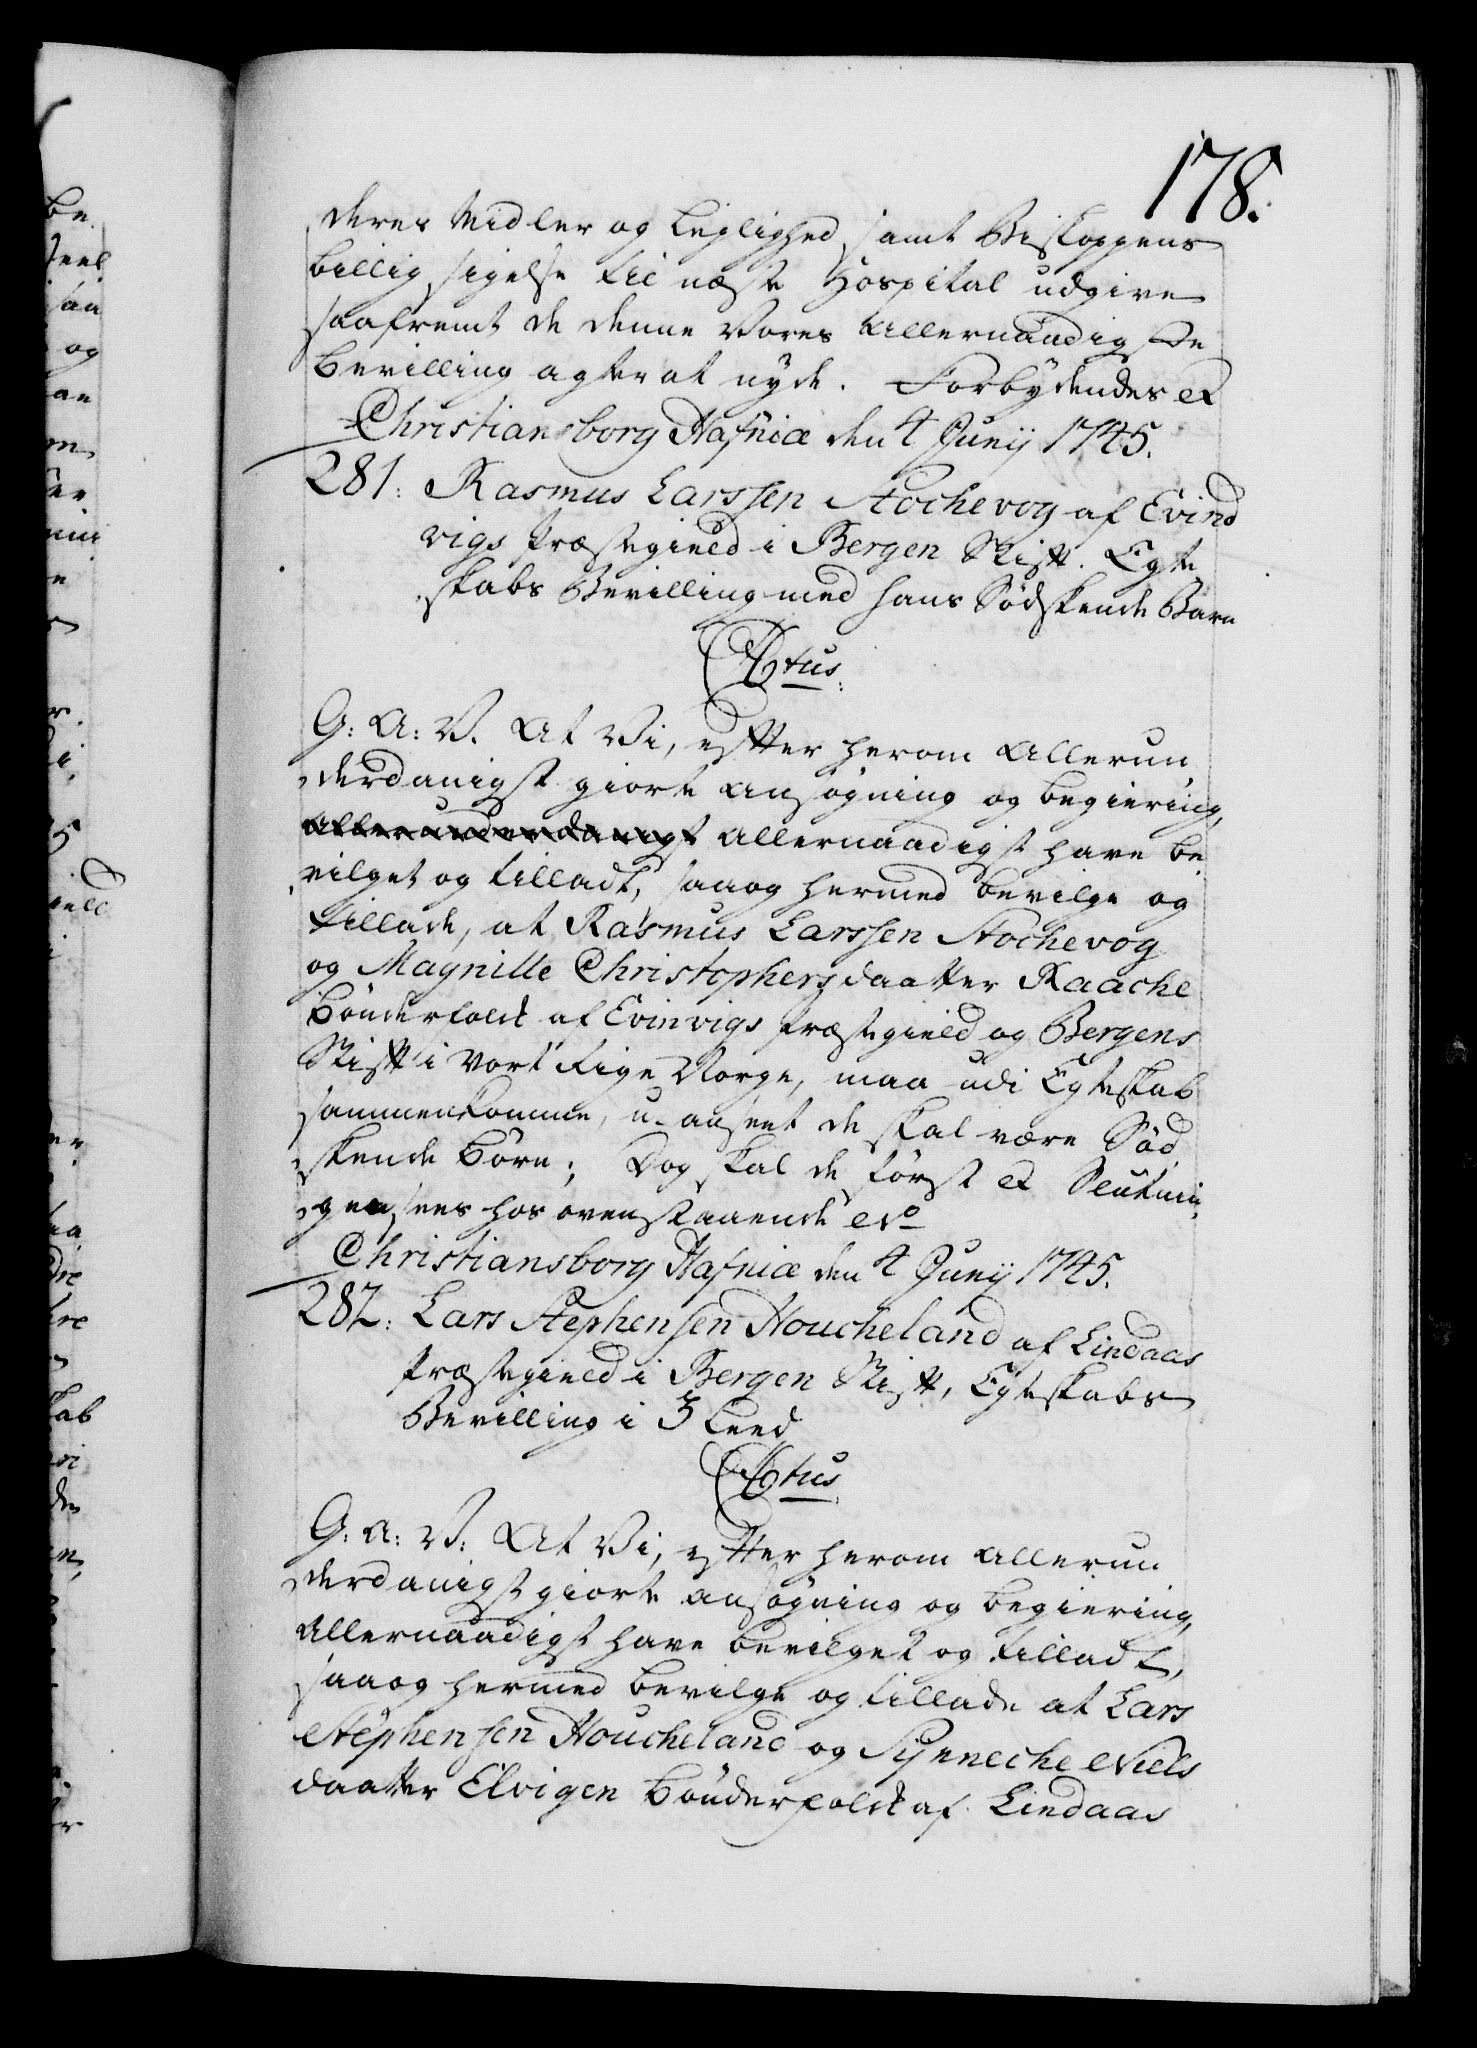 178.
deres Midler og Leylighed samt Biskoppens
billig sigelse til næste Hospital udgive
saafremt de denne Vores Allernaadigste
Bevilling agter at nyde. Forbydendes &
Christiansborg Hafniæ den 4 Junij 1745.
281: Rasmus Larssen Stochevog af Evind
vigs Præstegield i Bergen Stift. Egte
skabs Bevilling med hans Södskende Barn
C6tus.
G: A: V. At Vi, efter herom Allerun
derdanigst giorte ansögning og begiering,
Allerunderdanigst allernaadigst have be
vilget og tilladt, saa og hermed bevilge og
tillade, at Rasmus Larssen Stochevog
og Magnille Christophersdaatter Raache
Bönderfolk af Evinvigs Præstegield og Bergens
Stift i Vort Rige Norge, maa udi Egteskab
sammenkomme, u-anseet de skal være Söd
skende Börn; Dog skal de först &
sees hos ovenstaaende No
Christiansborg Hafniæ den 4 Junij 1745.
282: Lars Stephensen Houcheland af Lindaas
Præstegield i Bergen Stift, Egteskabs
Bevilling i 3 Leed
C6tus.
G: A: V: At Vi, efter herom Allerun
derdanigst giorte ansögning og begiering,
Allernaadigst have bevilget og tilladt,
saa og hermed bevilge og tillade at Lars
Stephensen Houcheland og Synneche Niels
daatter Elvigen Bönderfolk af Lindaas